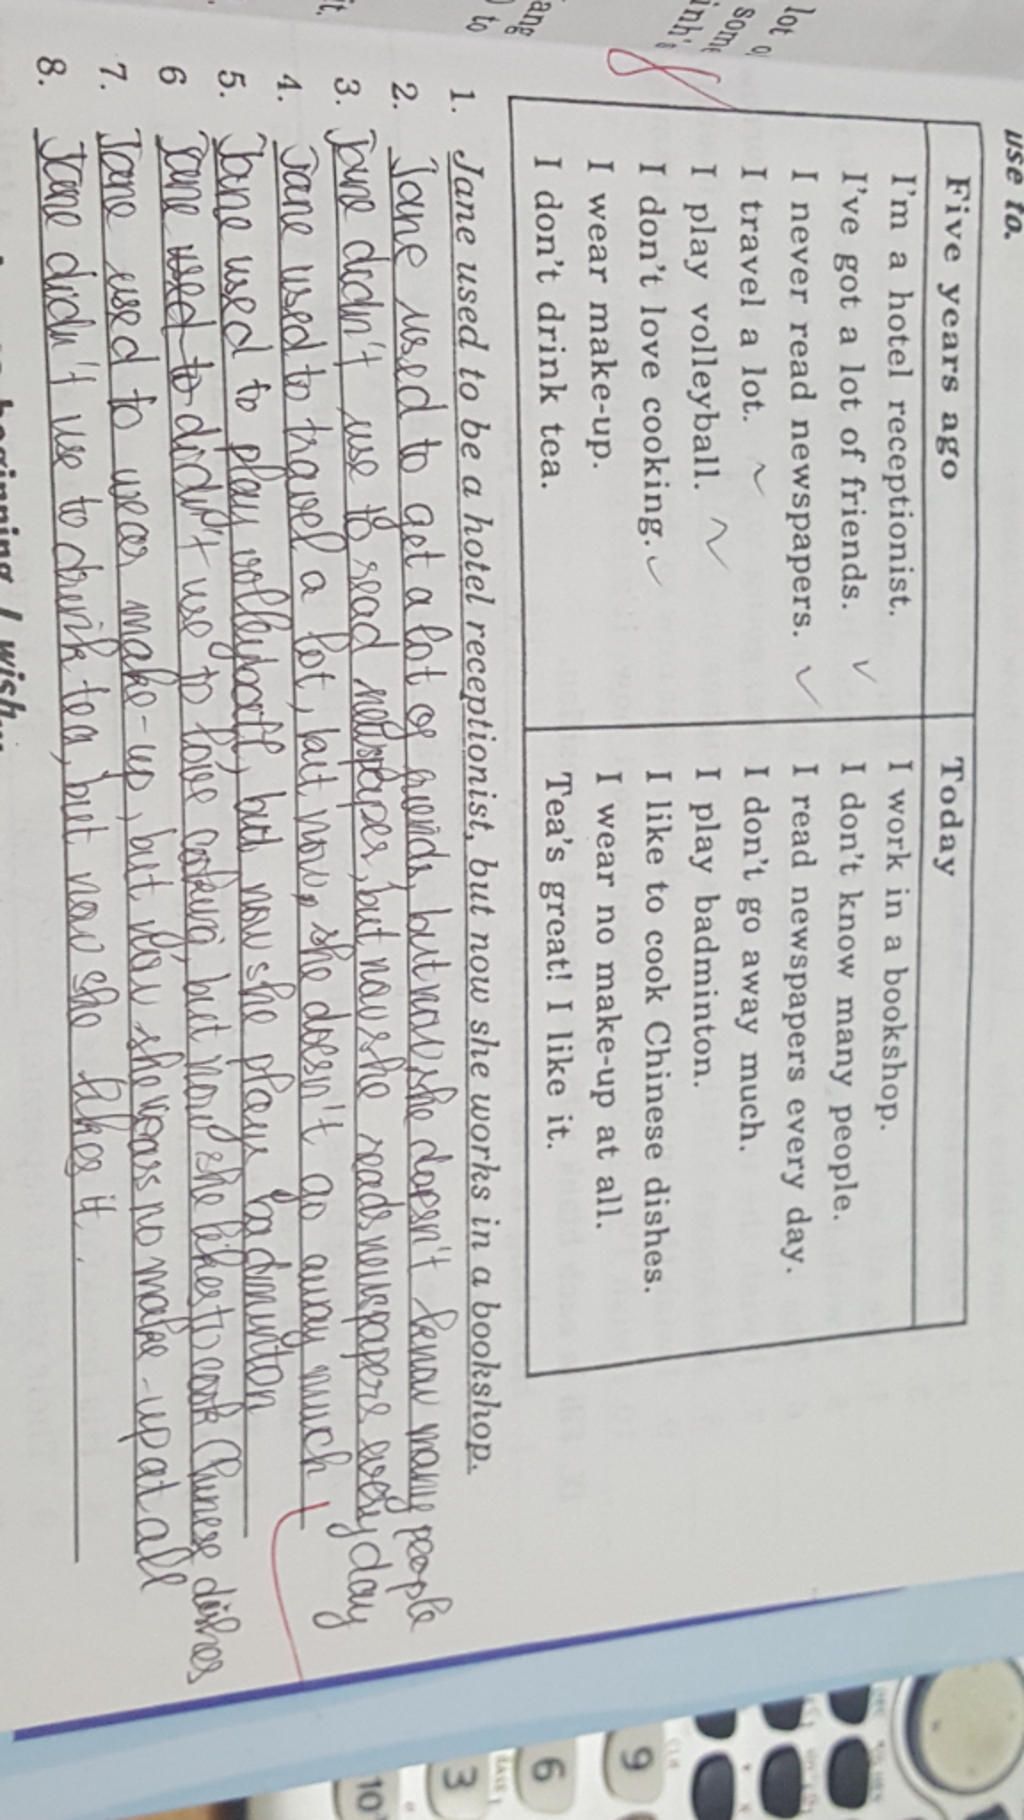 use to.
Five years ago
Today
I'm a hotel receptionist.
I work in a bookshop.
I've got a lot of friends.
I don't know many people.
I never read newspapers.
I read newspapers every day.
I travel a lot.
I don't go away much.
I play volleyball.
I play badminton.
I don't love cooking.
I like to cook Chinese dishes.
I wear make-up.
I wear no make-up at all.
I don't drink tea.
Tea's great! I like it.
1. Jane used to be a hotel receptionist, but now she works in a bookshop.
2. Jane used to get a lot of friends, but now she doesn't know many people
3. Jane didn't use to read newspaper, but now she reads newspapers every day
4. Jane used to travel a lot, but now, she doesn't go away much
5. Jane used to play volleyball, but now she plays badminton
6 Jane used to didn't use to love cooking, but now she likes to cook Chinese dishes
7. Jane used to wear make-up, but now she wears no make-up at all
8. Jane didn't use to drink tea, but now she likes it.
beginning I wish
lot
some
inh's
ang
to
it.
9
6
3
10